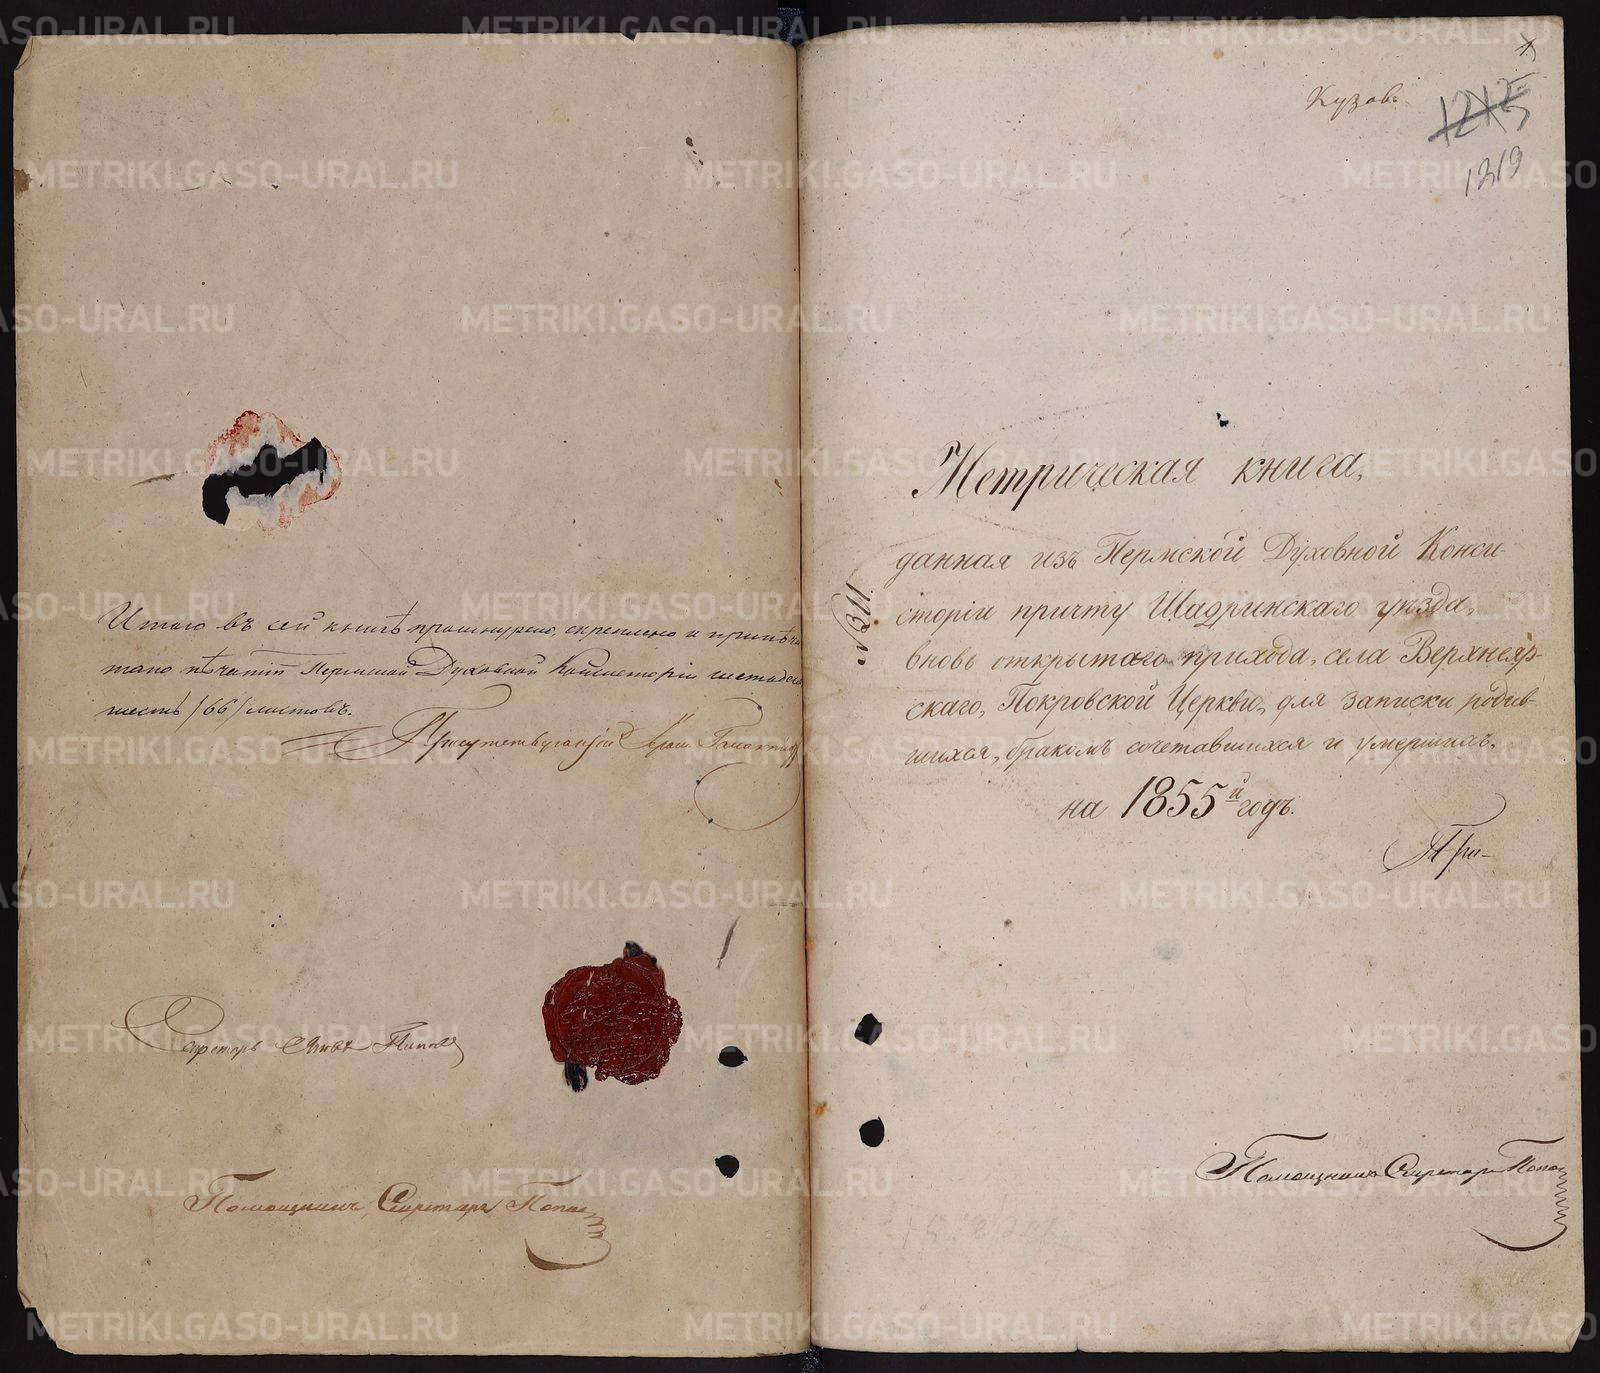 Итого въ сей книгѣ прошнурено, скреплено и припѣча
тано пѣчатiю Пермской Духовной Консисторiи шестьдесятъ
шесть /66/ листовъ.
Присутствующiй
Секретарь Попов
Помощникъ Секретаря Попов
Кузов:
1212
1219
Метрическая книга,
данная изъ Пермской Духовной Конси-
сторiи причту Шадринскаго уѣзда,
вновь открытаго прихода, села Верхнеяр-
скаго, Покровской Церкви, для записки родив-
шихся, бракомъ сочетавшихся и умершихъ.
на 1855й годъ.
При-
Помощникъ Секретаря Попов
METRIKI.GASO-URAL.RU